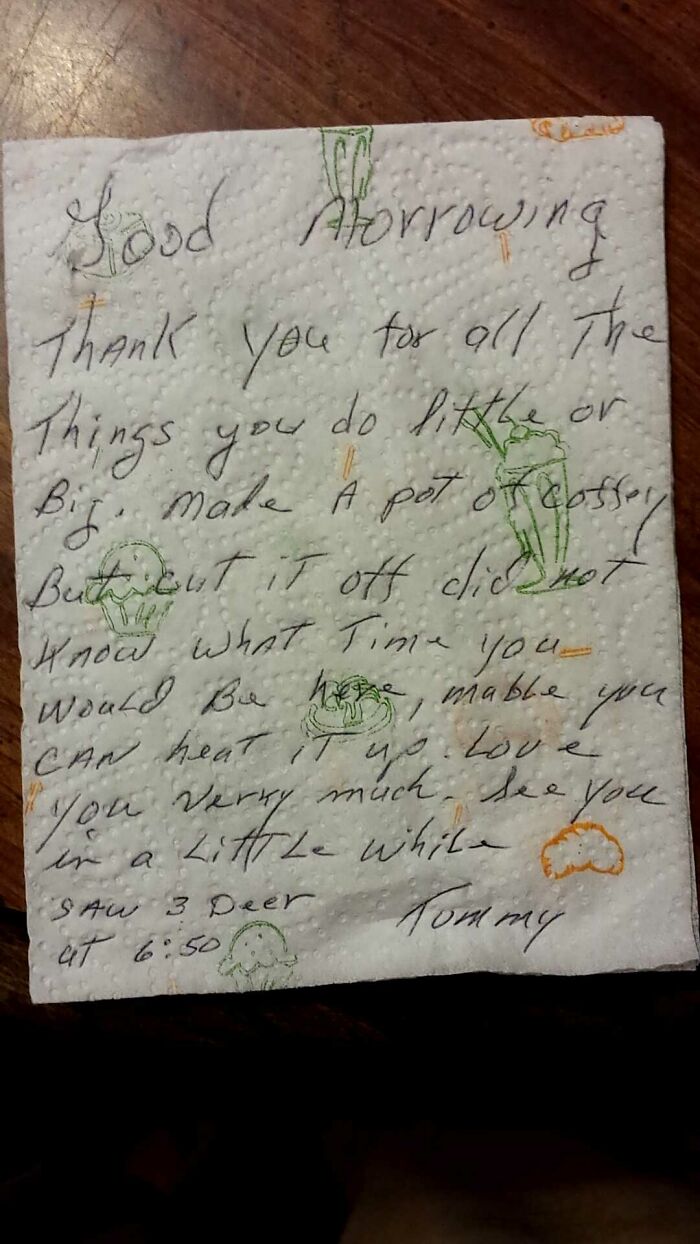 Good Morrowing
Thank you for all The
Things you do little or
Big. Made A pot of coffey
But cut it off did not
Know what Time you
would Be here, mabbe you
CAN heat it up. Love
you verky much. See you
in a LiTTLe while
SAW 3 Deer
at 6:50
Tommy